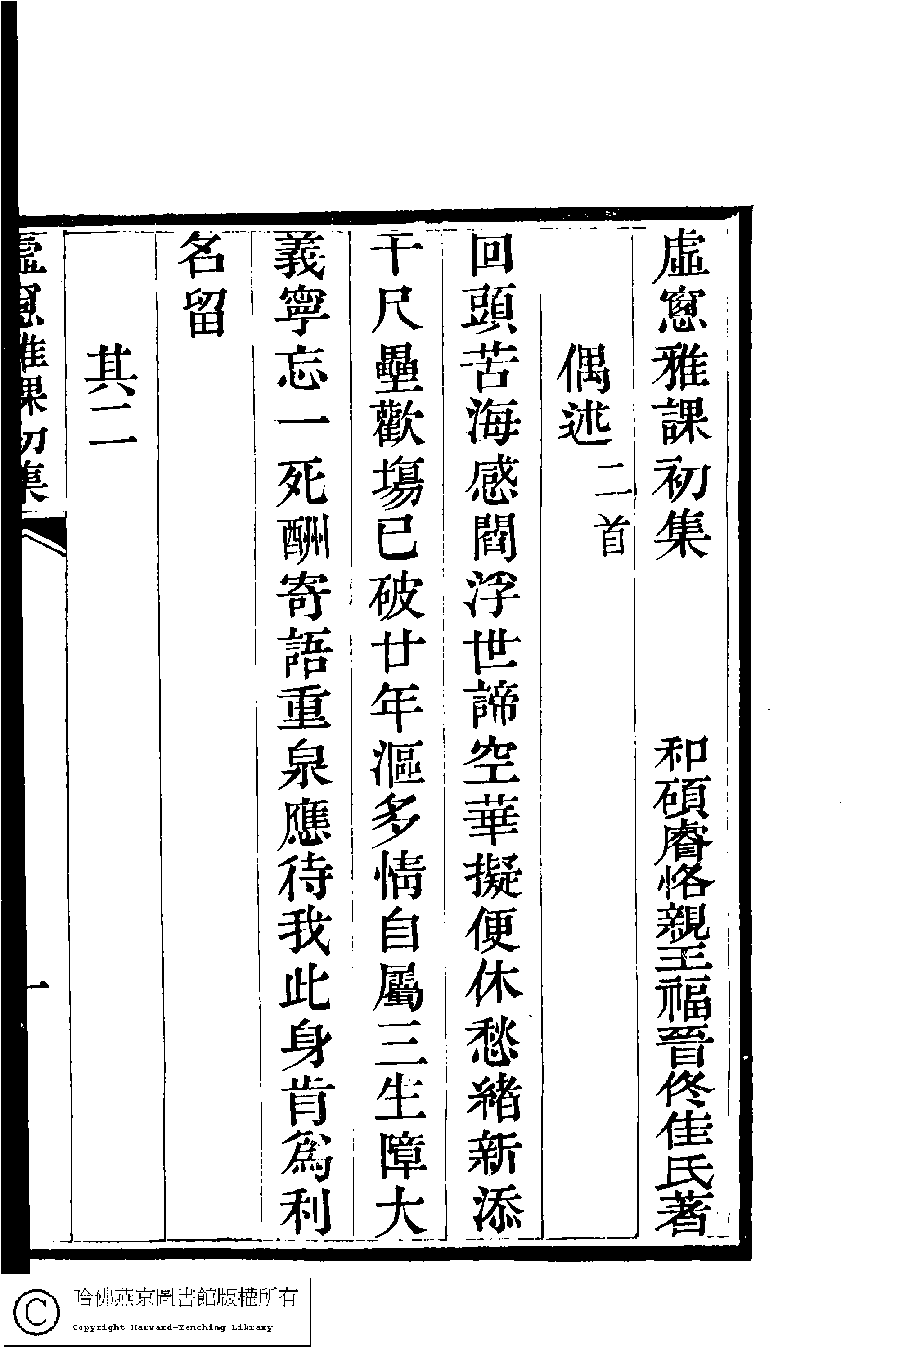 虛窻雅課初集　和碩睿恪親王福晉佟佳氏著
偶述二首
回頭苦海感閻浮世諦空華擬便休愁緒新添
千尺壘歡塲已破廿年漚多情自屬三生障大
義寧忘一死酬寄語重泉應待我此身肯爲利
名留
其二
虛窻雅課初集
一
哈佛燕京圖書館版權所有
Copyright Harvard-Yenching Library